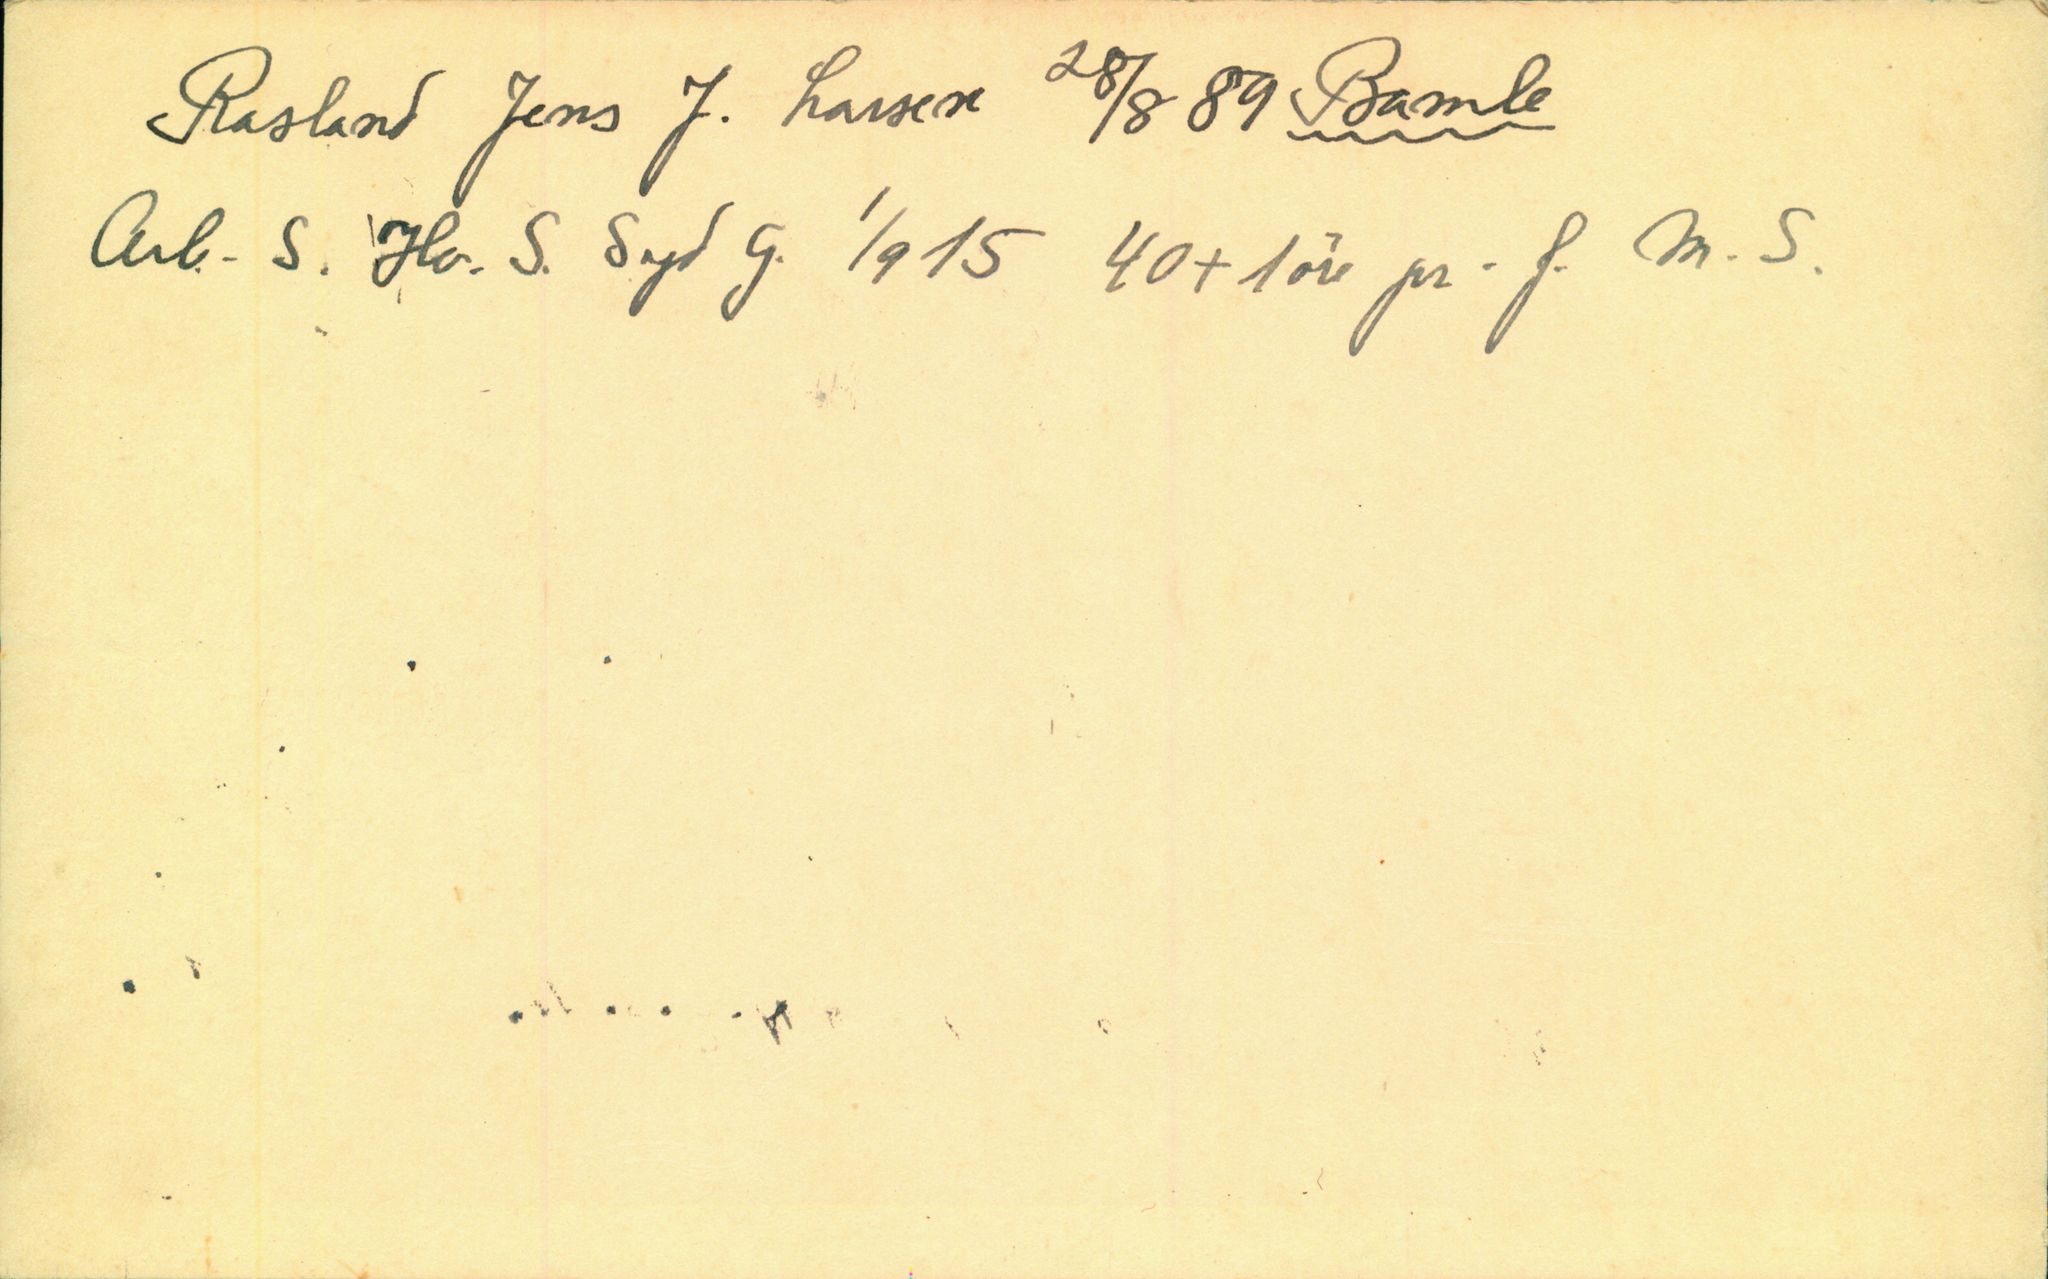 Rasland Jens J. Larsen 28/8 89 Bamle
Arb. S. Hv. S. Syd G. 1/9 15 40+1öre pr. f. M. S.